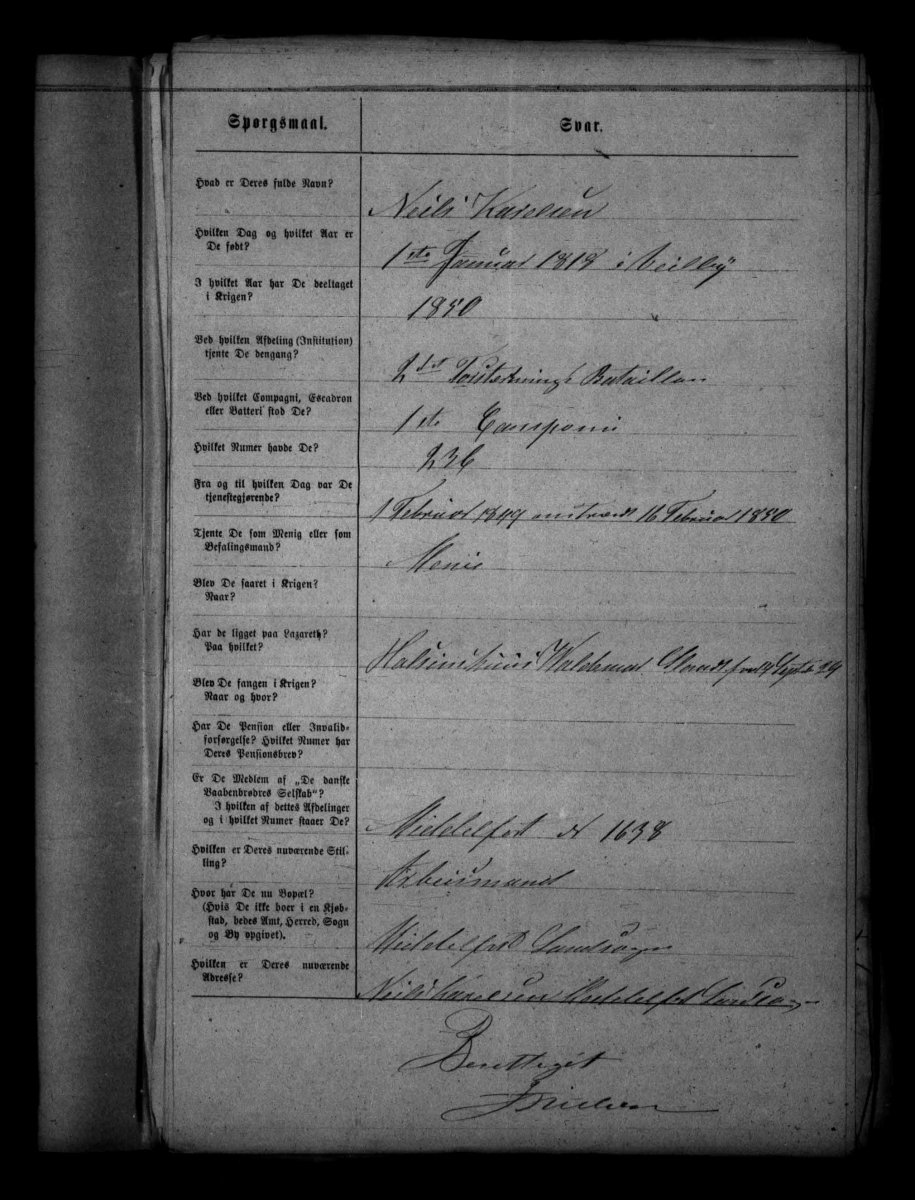 Spørgsmaal.
Svar.
Hvad er Deres fulde Navn?
Neils Karelsen
Hvilken Dag og hvilket Aar er
De født?
1ste Januar 1818 i Veilby
I hvilket Aar har De deeltaget
i Krigen?
1850
Ved hvilken Afdeling (Institution)
tjente De dengang?
2det Bataillon
Ved hvilket Compagni, Escadron
eller Batteri stod De?
1ste Camponi
Hvilket Numer havde De?
236
Fra og til hvilken Dag var De
tjenestegjørende?
1 Februar 1849 16 Februar 1850
Tjente De som Menig eller som
Befalingsmand?
Menie
Blev De saaret i Krigen?
Naar?
Har de ligget paa Lazareth?
Paa hvilket?
Waldemar
Blev De fangen i Krigen?
Naar og hvor?
Har De Pension eller Invalid-
forsørgelse? Hvilket Numer har
Deres Pensionsbrev?
Er De Medlem af „De danske
Vaabenbrødres Selskab“?
I hvilken af dettes Afdelinger
og i hvilket Numer staaer De?
Middelfart № 1638
Hvilken er Deres nuværende Stil-
ling?
Arbeismand
Hvor har De nu Bopæl?
(Hvis De ikke boer i en Kjøb-
stad, bedes Amt, Herred, Sogn
og By opgivet).
Middelfart Landsogn
Hvilken er Deres nuværende
Adresse?
Neils Karelsen Middelfart
Berettiget